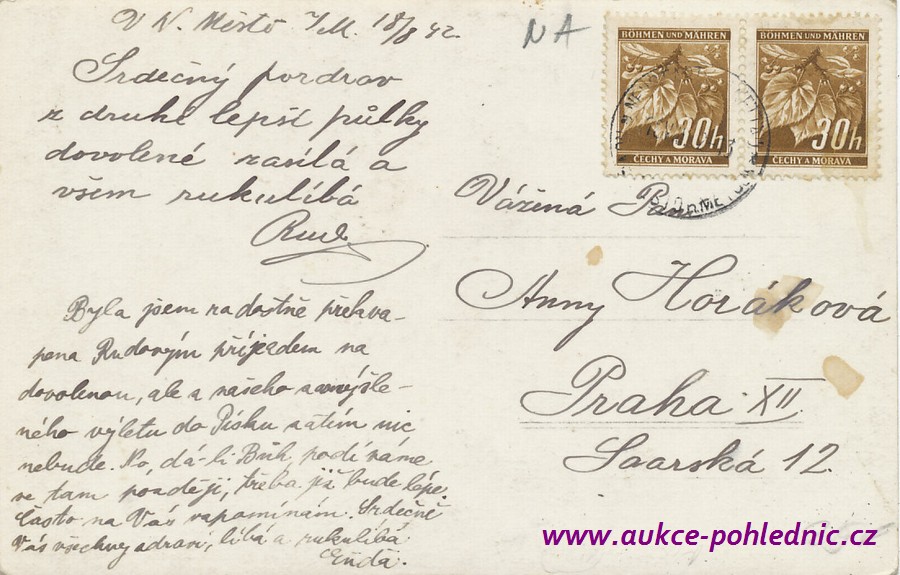 V N. Městě /M. 18/8 42.
NA
Srdečný pozdrav
z druhé lepší půlky
dovolené zasílá a
všem rukulíbá
Rud.
Byla jsem radostně překva-
pena Rudovým příjezdem na
dovolenou, ale z našeho zamýšle-
ného výletu do Písku zatím nic
nebude. No, dá-li Bůh podíváme
se tam později, třeba již bude lépe.
Často na Vás vzpomínám. Srdečně
Vás všechny zdraví, líbá a rukulíbá
BÖHMEN UND MÄHREN
30h
ČECHY A MORAVA
BÖHMEN UND MÄHREN
30h
ČECHY A MORAVA
Vážená Paní
Anny Horáková
Praha XII
Saarská 12.
www.aukce-pohlednic.cz